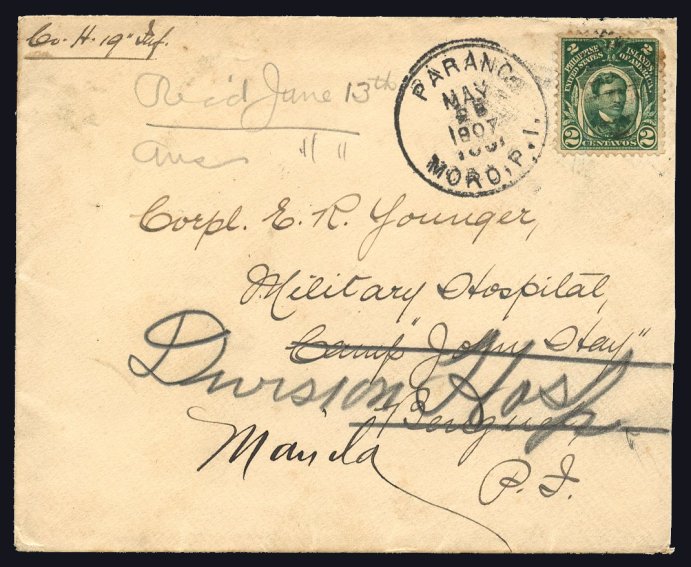 Co. H. 19" Inf.
Rec'd June 13th
Ans " "
PARANG
MAY
1907
MORO, P. I.
2 PHILIPPINE ISLANDS 2
UNITED STATES OF AMERICA
2 CENTAVOS 2
Corpl. E. R. Younger,
Military Hospital,
Camp "John Hay"
Division Hosp.
Benguet,
Manila
P. I.